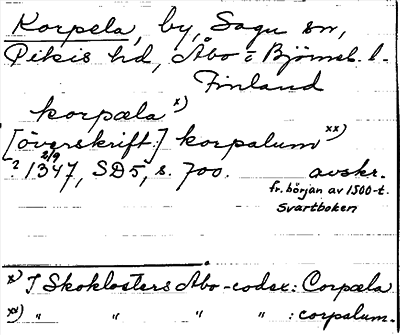 Korpela, by, Sagu sn,
Pikis hd, Åbo o Björneb. l.
Finland
korpæla x)
[överskrift:] korpalum xx)
? 2/9 1347, SD5, s. 700. avskr.
fr. början av 1500-t.
Svartboken
x) I Skoklosters Åbo-codex: Corpæla
xx) " " " " : corpalum.